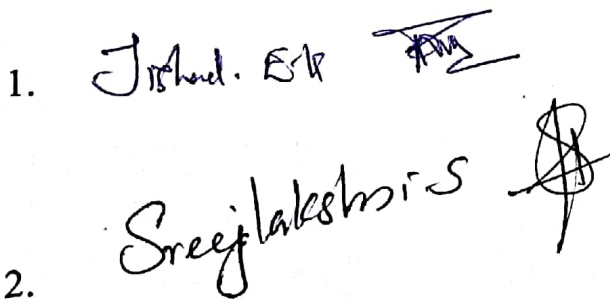 1. Jishad. E.K
2. Sreejlakshmi.S